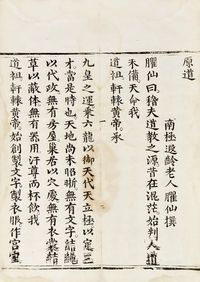 原道
南極遐齡老人臞仙撰
臞仙曰稽夫道教之源昔在混茫始判人道
未備天命我
道祖軒轅黃帝承
九皇之運乘六龍以御天代天立極以定三
才當是時也天地尚未昭晰無有文字結繩
以代政無有房屋巢居以穴處無有衣裳結
草以蔽体無有器用汙尊而杯飲我
道祖軒轅黃帝始創製文字製衣服作宮室